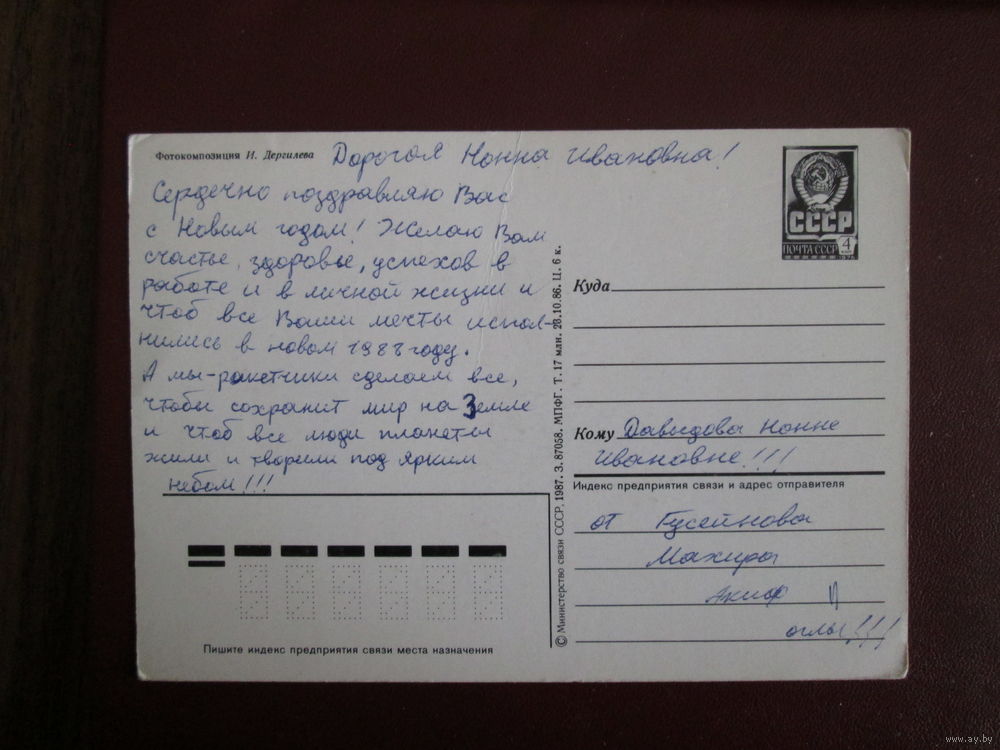 Фотокомпозиция И. Дергилева
Дорогая Нонна Ивановна!
Сердечно поздравляю Вас
с Новым годом! Желаю Вам
счастье, здоровье, успехов в
работе и в личной жизни и
чтоб все Ваши мечты испол-
нились в новом 1988 году.
А мы-ракетчики сделаем все,
чтобы сохранит мир на Земле
и чтоб все люди планеты
жили и творили под ярким
небом!!!
Пишите индекс предприятия связи места назначения
© Министерство связи СССР, 1987. З. 87058. МПФГ. Т. 17 млн. 23.10.86. Ц. 6 к.
СССР
ПОЧТА СССР
4
Куда
Кому Давыдова Нонне
Ивановне!!!
Индекс предприятия связи и адрес отправителя
от Гусейнова
Махира
Акиф
оглы!!!
www.ay.by